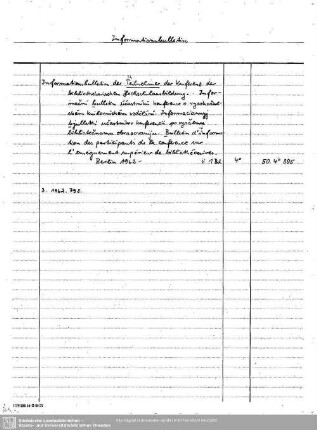 Informationsbulletin
Informationsbulletin der Teilnehmer der Konferenz der
bibliothekarischen Hochschulausbildung. Infor-
mační bulletin účastníků konference o vysokoškol-
ském knihovnickém vzdělání. Informacionnyj
bjulleten' učastnikov konferencii po vysšemu
bibliotečnomu obrazovaniju. Bulletin d'informa-
tion des participants de la conférence sur
l'enseignement supérieur de bibliothécaires.
Berlin 1962- 4° 50.4° 885
2. 1962. 798.